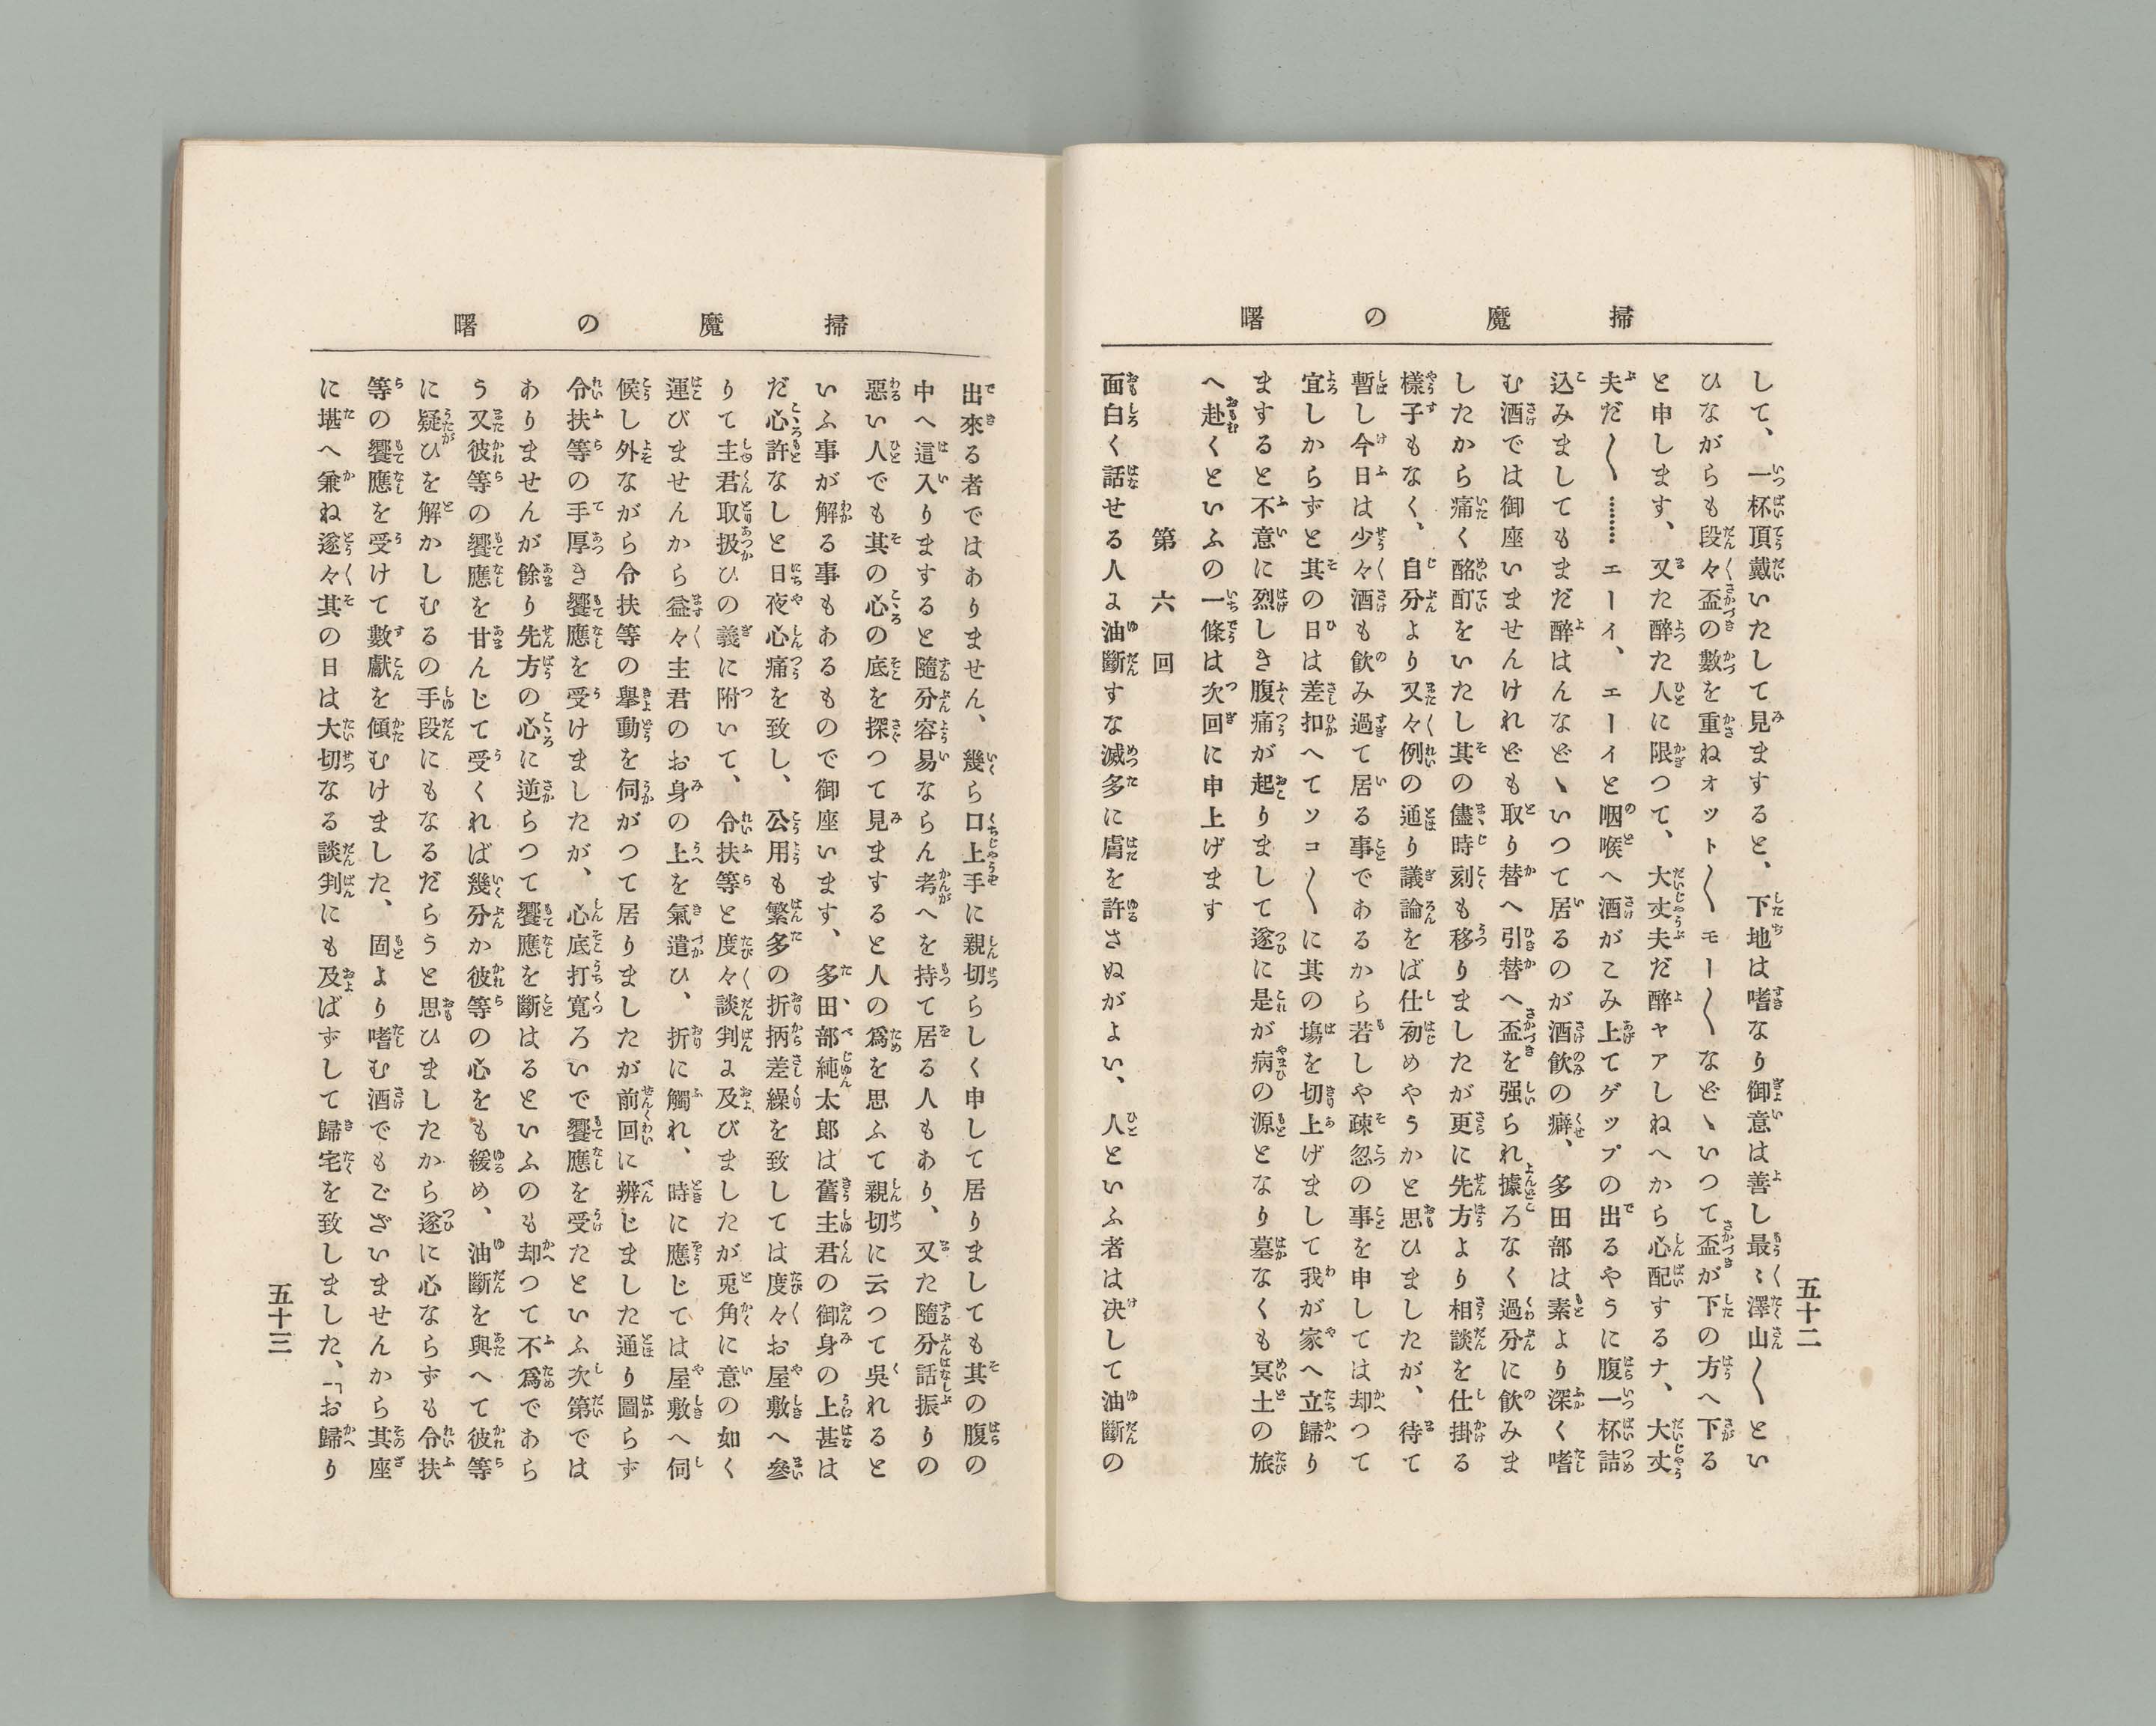 掃魔の曙
して、一杯頂戴いたして見ますると、下地は嗜なり御意は善し最〻澤山〱とい
ひながらも段々盃の數を重ねオット〱モー〱などゝいつて盃が下の方へ下る
と申します、又た醉た人に限つて、大丈夫だ醉ャアしねへから心配するナ、大丈
夫だ〱………エーイ、エーイと咽喉へ酒がこみ上てゲップの出るやうに腹一杯詰
込みましてもまだ醉はんなどゝいつて居るのが酒飮の癖、多田部は素より深く嗜
む酒では御座いませんけれども取り替へ引替へ盃を强られ據ろなく過分に飮みま
したから痛く酩酊をいたし其の儘時刻も移りましたが更に先方より相談を仕掛る
樣子もなく、自分より又々例の通り議論をば仕初めやうかと思ひましたが、待て
暫し今日は少々酒も飮み過て居る事であるから若しや疎忽の事を申しては却つて
宜しからずと其の日は差扣へてソコ〱に其の塲を切上げまして我が家へ立歸り
ますると不意に烈しき腹痛が起りまして遂に是が病の源となり墓なくも冥土の旅
へ赴くといふの一條は次回に申上げます
第六回
面白く話せる人に油斷すな滅多に膚を許さぬがよい、人といふ者は决して油斷の
五十二
掃魔の曙
出來る者ではありません、幾ら口上手に親切らしく申して居りましても其の腹の
中へ這入りますると隨分容易ならん考へを持て居る人もあり、又た隨分話振りの
惡い人でも其の心の底を探つて見ますると人の爲を思ふて親切に云つて吳れると
いふ事が解る事もあるもので御座います、多田部純太郎は舊主君の御身の上甚は
だ心許なしと日夜心痛を致し、公用も繁多の折柄差繰を致しては度々お屋敷へ參
りて主君取扱ひの義に附いて、令扶等と度々談判に及びましたが兎角に意の如く
運びませんから益々主君のお身の上を氣遣ひ、折に觸れ、時に應じては屋敷へ伺
候し外ながら令扶等の擧動を伺がつて居りましたが前回に辨じました通り圖らず
令扶等の手厚き饗應を受けましたが、心底打寬ろいで饗應を受たといふ次第では
ありませんが餘り先方の心に逆らつて饗應を斷はるといふのも却つて不爲であら
う又彼等の饗應を甘んじて受くれば幾分か彼等の心をも緩め、油斷を與へて彼等
に疑ひを解かしむるの手段にもなるだらうと思ひましたから遂に心ならずも令扶
等の饗應を受けて數獻を傾むけました、固より嗜む酒でもございませんから其座
に堪へ兼ね遂々其の日は大切なる談判にも及ばずして歸宅を致しました、「お歸り
五十三